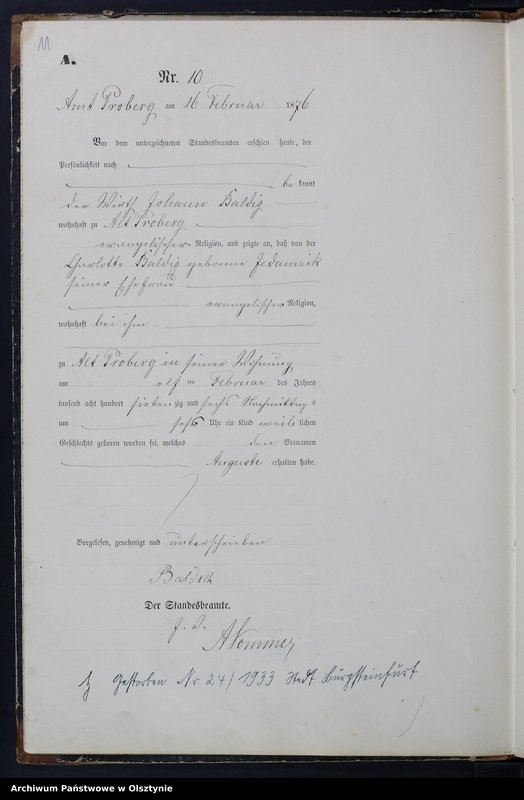 11
A.
Nr. 10
Amt Proberg am 16 Februar 1876
Vor dem unterzeichneten Standesbeamten erschien heute, der
Persönlichkeit nach
be kannt
der Wirth Johann Baldig
wohnhaft zu Alt Proberg
evangelischer Religion, und zeigte an, daß von der
Charlotte Baldig geborene Jedamzik
seiner Ehefrau
evangelischer Religion,
wohnhaft bei ihm
zu Alt Proberg in seiner Wohnung
am elf ten Februar des Jahres
tausend acht hundert sieben zig und sechs Nachmittags
um sechs Uhr ein Kind weib lichen
Geschlechts geboren worden sei, welches den Vornamen
Auguste erhalten habe.
Vorgelesen, genehmigt und unterschrieben
Der Standesbeamte.
Gestorben Nr. 24/1933 Stadt Burgsteinfurt
Archiwum Państwowe w Olsztynie